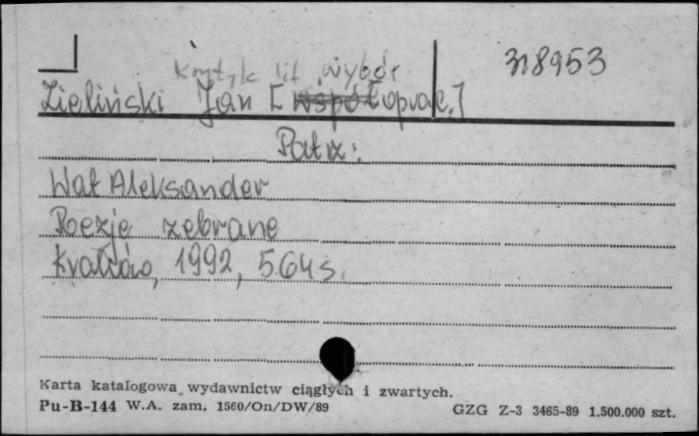 Krytyk lit wybór 318953
Zieliński Jan [współoprac.]
Patrz:
Wat Aleksander
Poezje zebrane
Kraków, 1992, 564 s.
Karta katalogowa wydawnictw ciągłych i zwartych.
Pu-B-144 W.A. zam. 1560/On/DW/89 GZG Z-3 3465-89 1.500.000 szt.